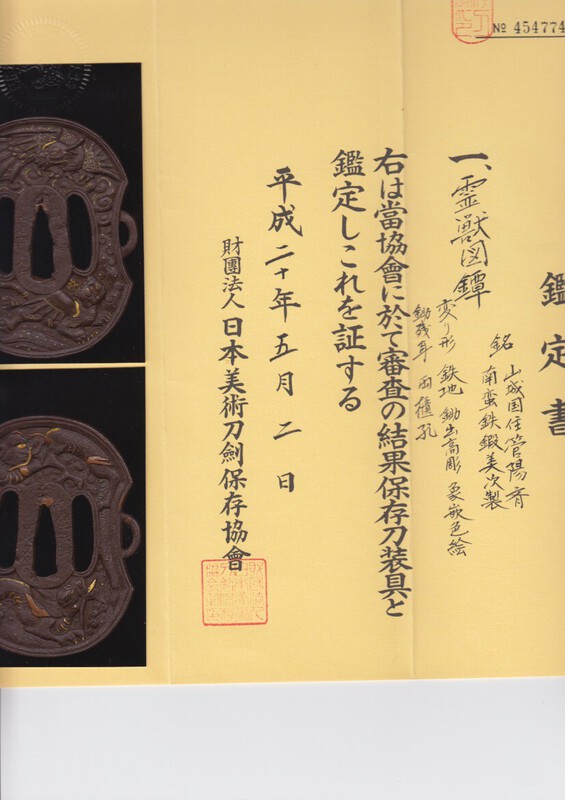 № 454774
鑑定書
一、霊獣図鐔
銘 山城国住管陽斎
南蛮鉄鍛美次製
変り形 鉄地 鋤出高彫 象嵌色絵
鋤残耳 両櫃孔
右は當協會に於て審査の結果保存刀装具と
鑑定しこれを証する
平成二十年五月二日
財團法人日本美術刀劍保存協會